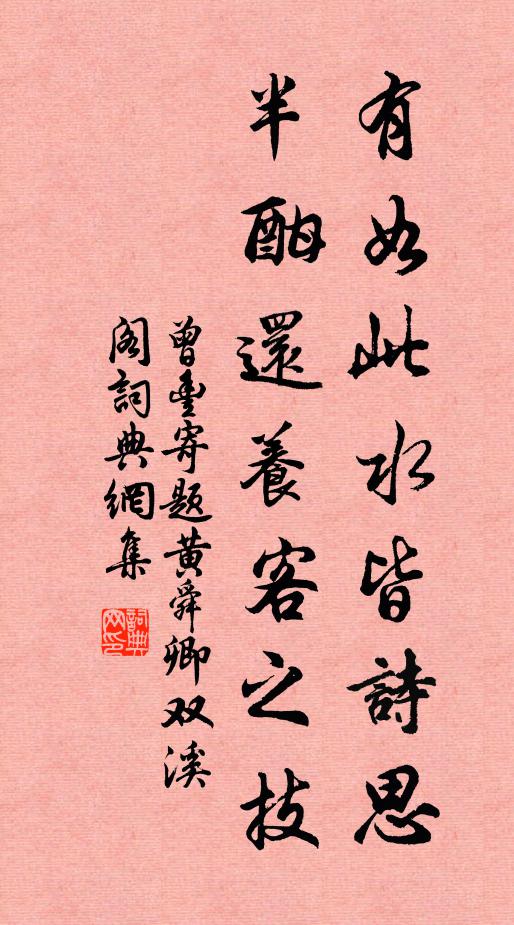 有如此水皆詩思
半酣還養客之技
曾豐寄题黄舜卿双溪
阁詞典網集
詞典网印